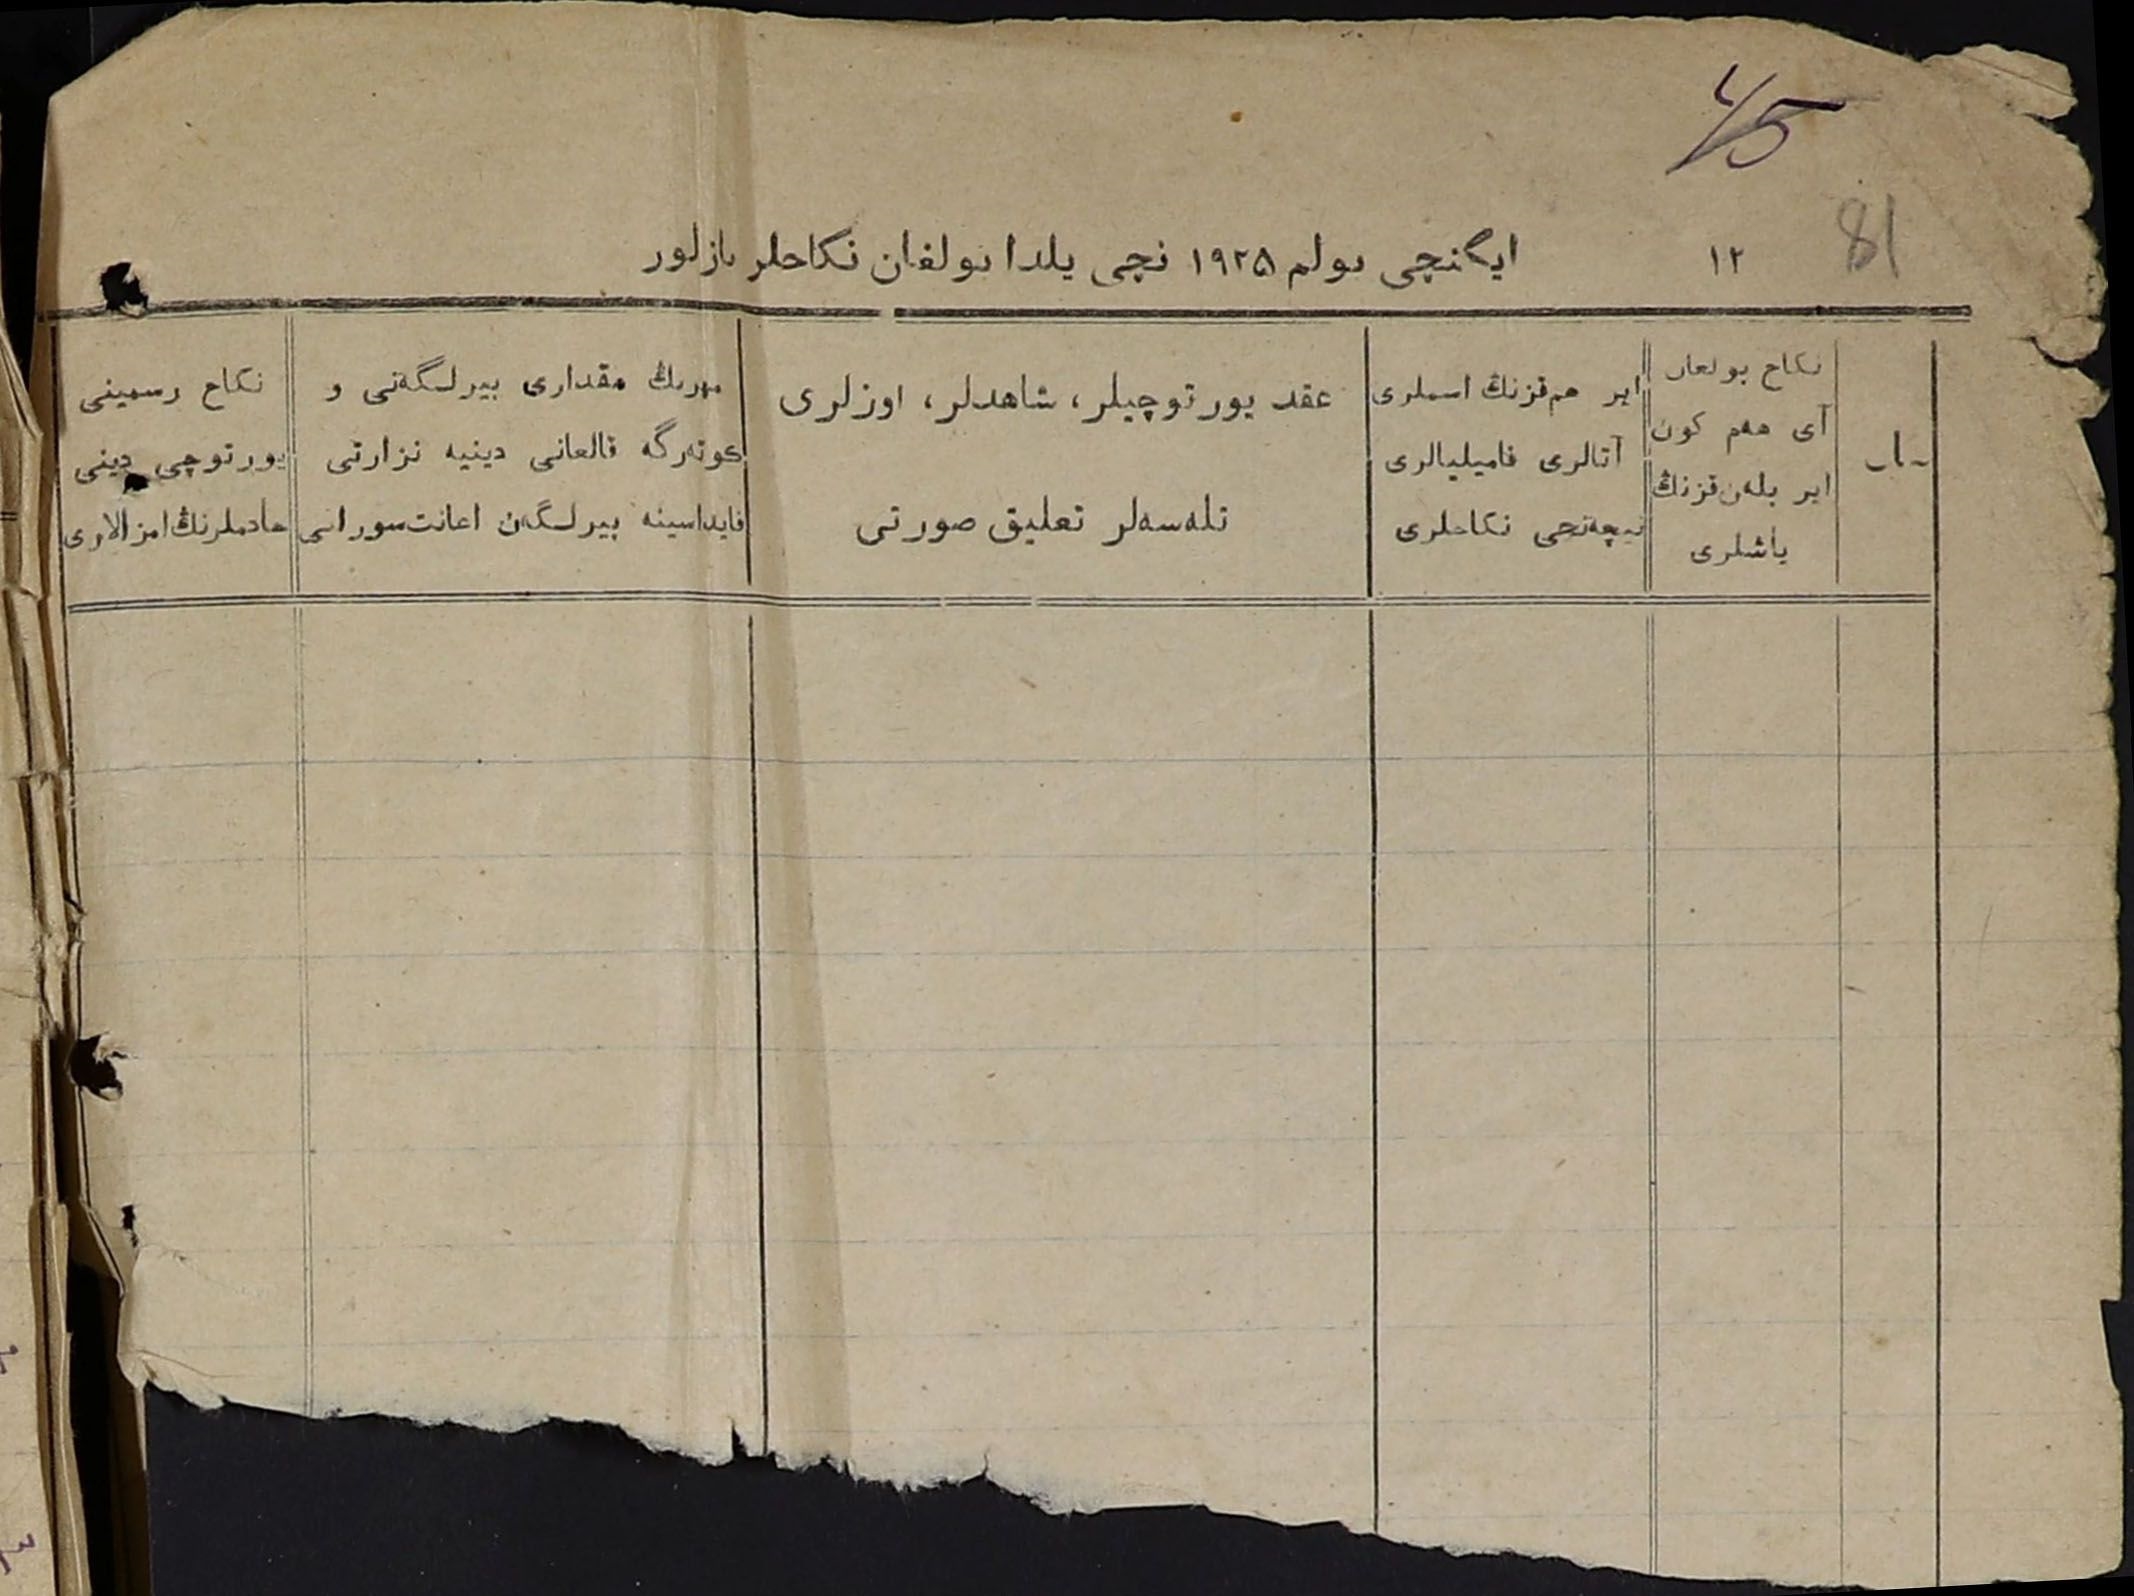 45
81
١٢
ایکنچی بولم ١٩٢٥ نچی یلدا بولغان نکاحلر یازلور
سان
نکاح بولغان
آی هەم کون
ایر بلەن قزنڭ
یاشلری
ایر هم قزنڭ اسملری
آتالری فامیلیالری
نیچەنچی نکاحلری
عقد یورتوچیلر، شاهدلر، اوزلری
تلەسەلر تعلیق صورتی
مهرنڭ مقداری بیرلگەنی و
کوتەرگە قالغانی دینیە نزارتی
فایداسینە بیرلگەن اعانت سوراسی
نکاح رسمینی
یورتوچی دینی
خادملرنڭ امزالاری